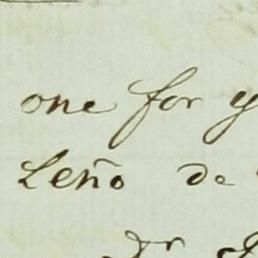 one for y
Leño de